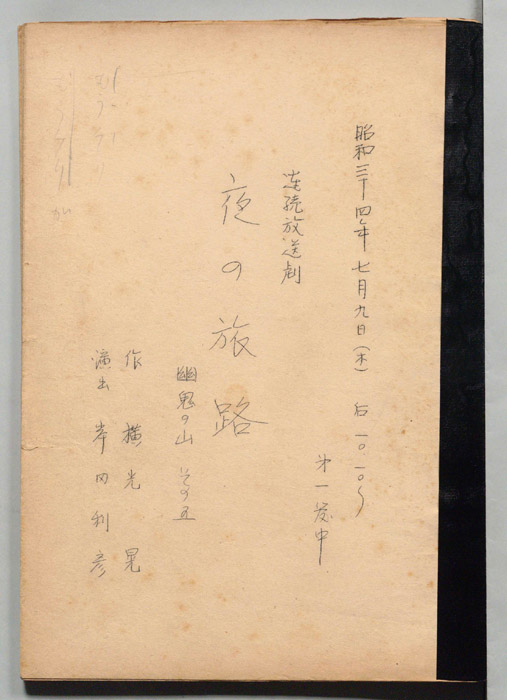 昭和三十四年七月九日（木） 后一〇.一〇〜
㐧一発中
連続放送劇
夜の旅路
幽鬼の山 その五
作 横光晃
演出 岸田利彦